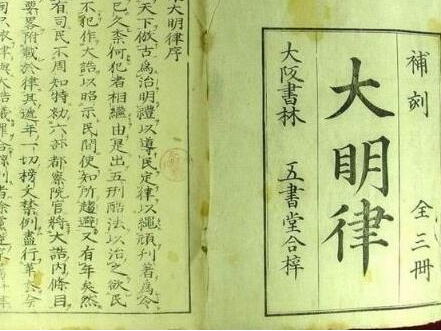 補刻
大明律
全三冊
大阪書林
五書堂合梓
大明律序
天下倣古為治明禮以導民定律以繩頑刊著為令
已久柰何犯者相繼由是出五刑酷法以治之欲民
不犯作大誥以昭示民間使知所趨避又有年矣然
有司民不周知特勑六部都察院官將大誥內條目
要畧附載於律其逓年一切榜文禁例盡行革去今
司只依律與大誥議罪合黥刺者除黨逆